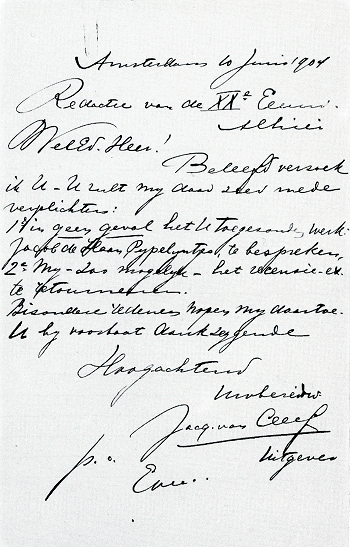 Amsterdam 10 Juni 1904
Redactie van de XXe Eeuw.
Alhier
WelEd. Heer!
Beleefd verzoek
ik U - U zult my daar zeer mede
verplichten:
1e in geen geval het U toegezonden werk
Jacob de Haan, Pypelyntjes, te bespreken,
2e My - zoo mogelyk - het recensie-ex.
te retourneeren.
Bizondere redenen nopen my daartoe.
U by voorbaat dankzeggende
Hoogachtend
Uw
Jacq. van Cleef
Uitgever
p. o.